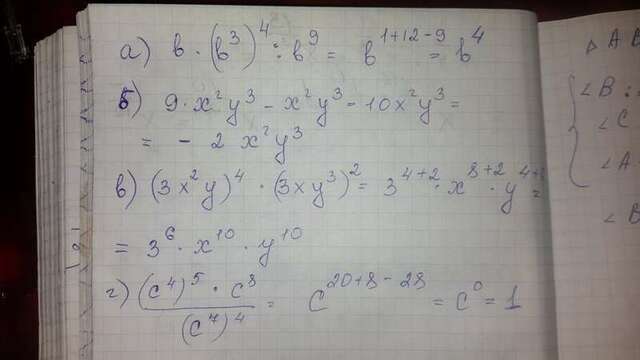 а) b · (b³)⁴ : b⁹ = b¹⁺¹²⁻⁹ = b⁴
б) 9·x²y³ - x²y³ - 10x²y³ =
= - 2 x²y³
в) (3x²y)⁴ · (3xy³)² = 3⁴⁺² · x⁸⁺² · y⁴⁺
= 3⁶ · x¹⁰ · y¹⁰
г) (c⁴)⁵ · c⁸ / (c⁷)⁴ = c²⁰⁺⁸⁻²⁸ = c⁰ = 1
△ A B
∠B :
∠C
∠A
∠B